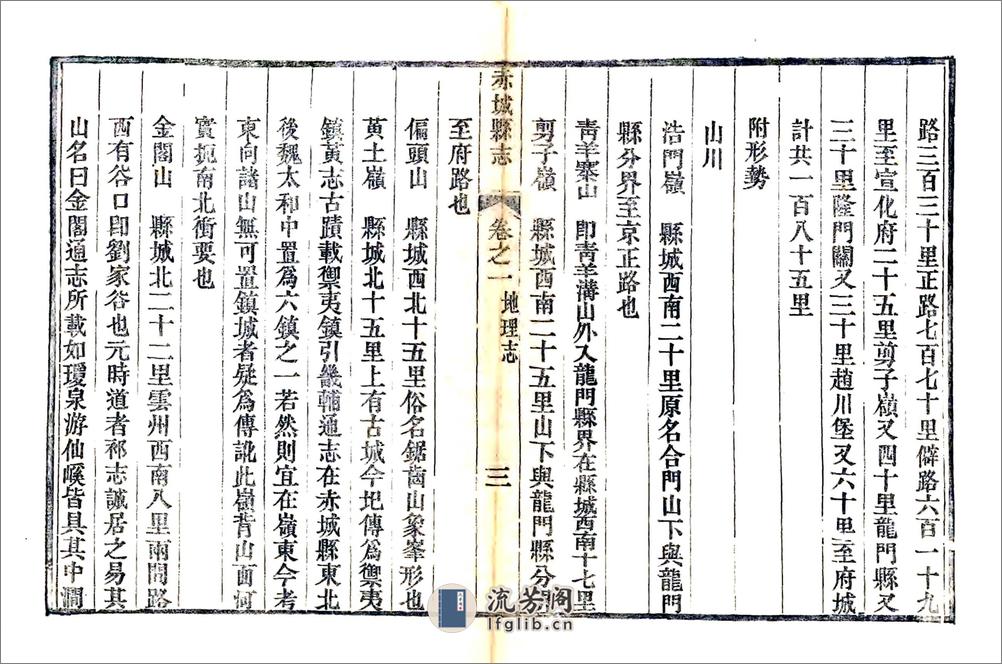 路三百三十里正路七百七十里僻路六百一十九
里至宣化府二十五里剪子嶺又四十里龍門縣又
三十里隆門關又三十里趙川堡又六十里至府城
計共一百八十五里
附形勢
山川
浩門嶺 縣城西南二十里原名合門山下與龍門
縣分界至京正路也
靑羊寨山 卽靑羊溝山外入龍門縣界在縣城西南十七里
剪子嶺 縣城西南二十五里山下與龍門縣分
赤城縣志 卷之一 地理志 三
至府路也
偏頭山 縣城西北十五里俗名鋸齒山象峯形也
黃土嶺 縣城北十五里上有古城今圯傳爲禦夷
鎮黃志古蹟載禦夷鎮引畿輔通志在赤城縣東北
後魏太和中置爲六鎮之一若然則宜在嶺東今考
東向諸山無可置鎮城者疑爲傳訛此嶺背山面河
實扼南北衝要也
金閣山 縣城北二十二里雲州西南八里兩間路
西有谷口卽劉家谷也元時道者祁志誠居之易其
山名曰金閣通志所載如瓊泉游仙峪皆具其中澗
流芳閣
lfglib.cn